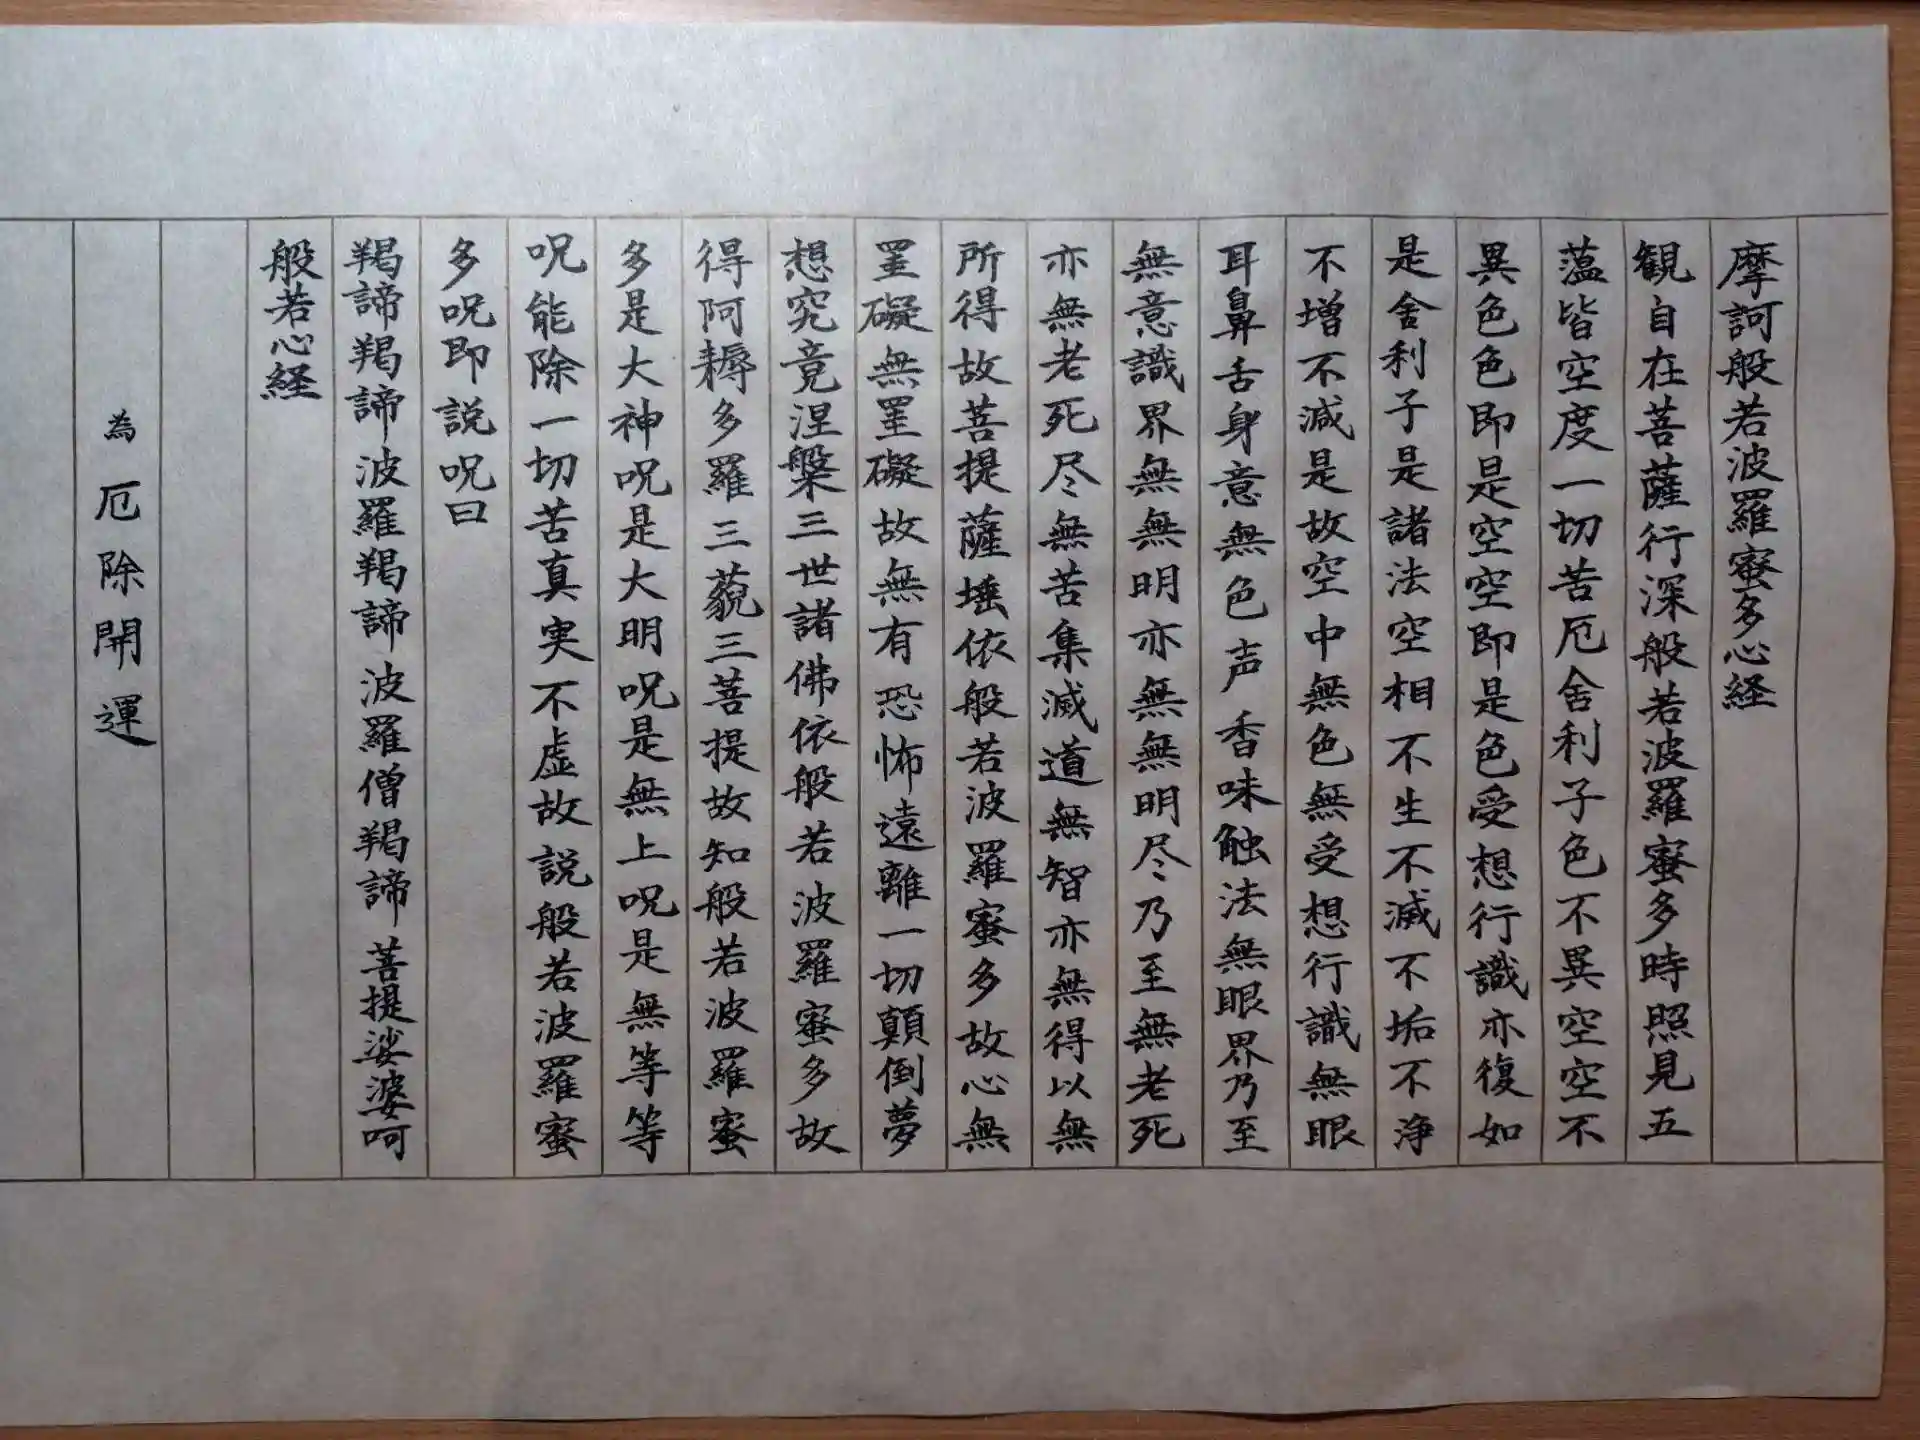 摩訶般若波羅蜜多心経
観自在菩薩行深般若波羅蜜多時照見五
薀皆空度一切苦厄舎利子色不異空空不
異色色即是空空即是色受想行識亦復如
是舎利子是諸法空相不生不滅不垢不浄
不増不減是故空中無色無受想行識無眼
耳鼻舌身意無色声香味触法無眼界乃至
無意識界無無明亦無無明尽乃至無老死
亦無老死尽無苦集滅道無智亦無得以無
所得故菩提薩埵依般若波羅蜜多故心無
罣礙無罣礙故無有恐怖遠離一切顛倒夢
想究竟涅槃三世諸佛依般若波羅蜜多故
得阿耨多羅三藐三菩提故知般若波羅蜜
多是大神呪是大明呪是無上呪是無等等
呪能除一切苦真実不虚故説般若波羅蜜
多呪即説呪曰
羯諦羯諦波羅羯諦波羅僧羯諦菩提娑婆呵
般若心経
為厄除開運